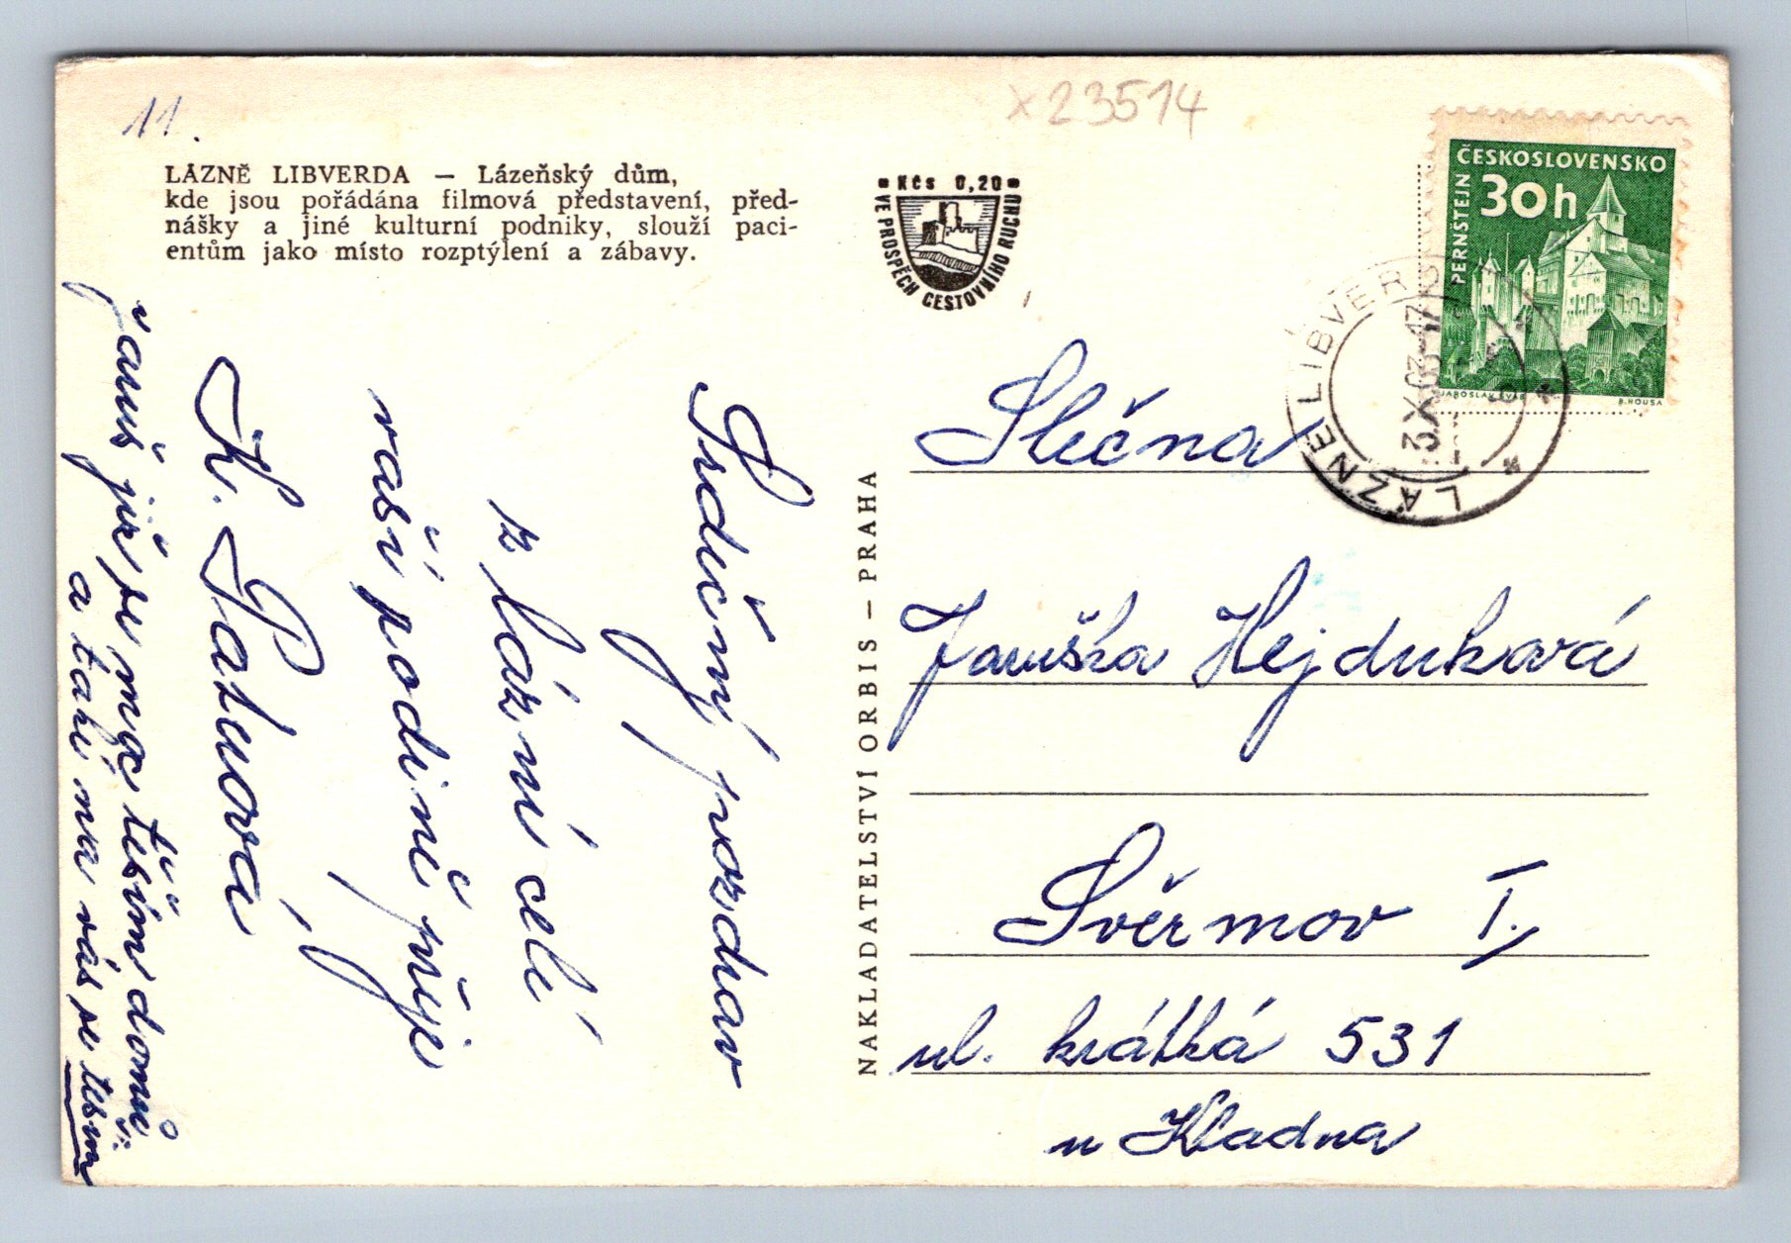 11.
x23514
LÁZNĚ LIBVERDA – Lázeňský dům,
kde jsou pořádána filmová představení, před-
nášky a jiné kulturní podniky, slouží paci-
entům jako místo rozptýlení a zábavy.
Kčs 0,20
VE PROSPĚCH CESTOVNÍHO RUCHU
ČESKOSLOVENSKO
30h
PERNŠTEJN
JAROSLAV ŠVÁB
B. HOUSA
LÁZNĚ LIBVERDA
Srdečný pozdrav
z lázní celé
vaší podině přeje
K. Patuová,
už se moc těším domů
a také na vás se těším
NAKLADATELSTVÍ ORBIS – PRAHA
Slečna
Jaruška Hejduková
Švermov I.
ul. krátká 531
u Kladna